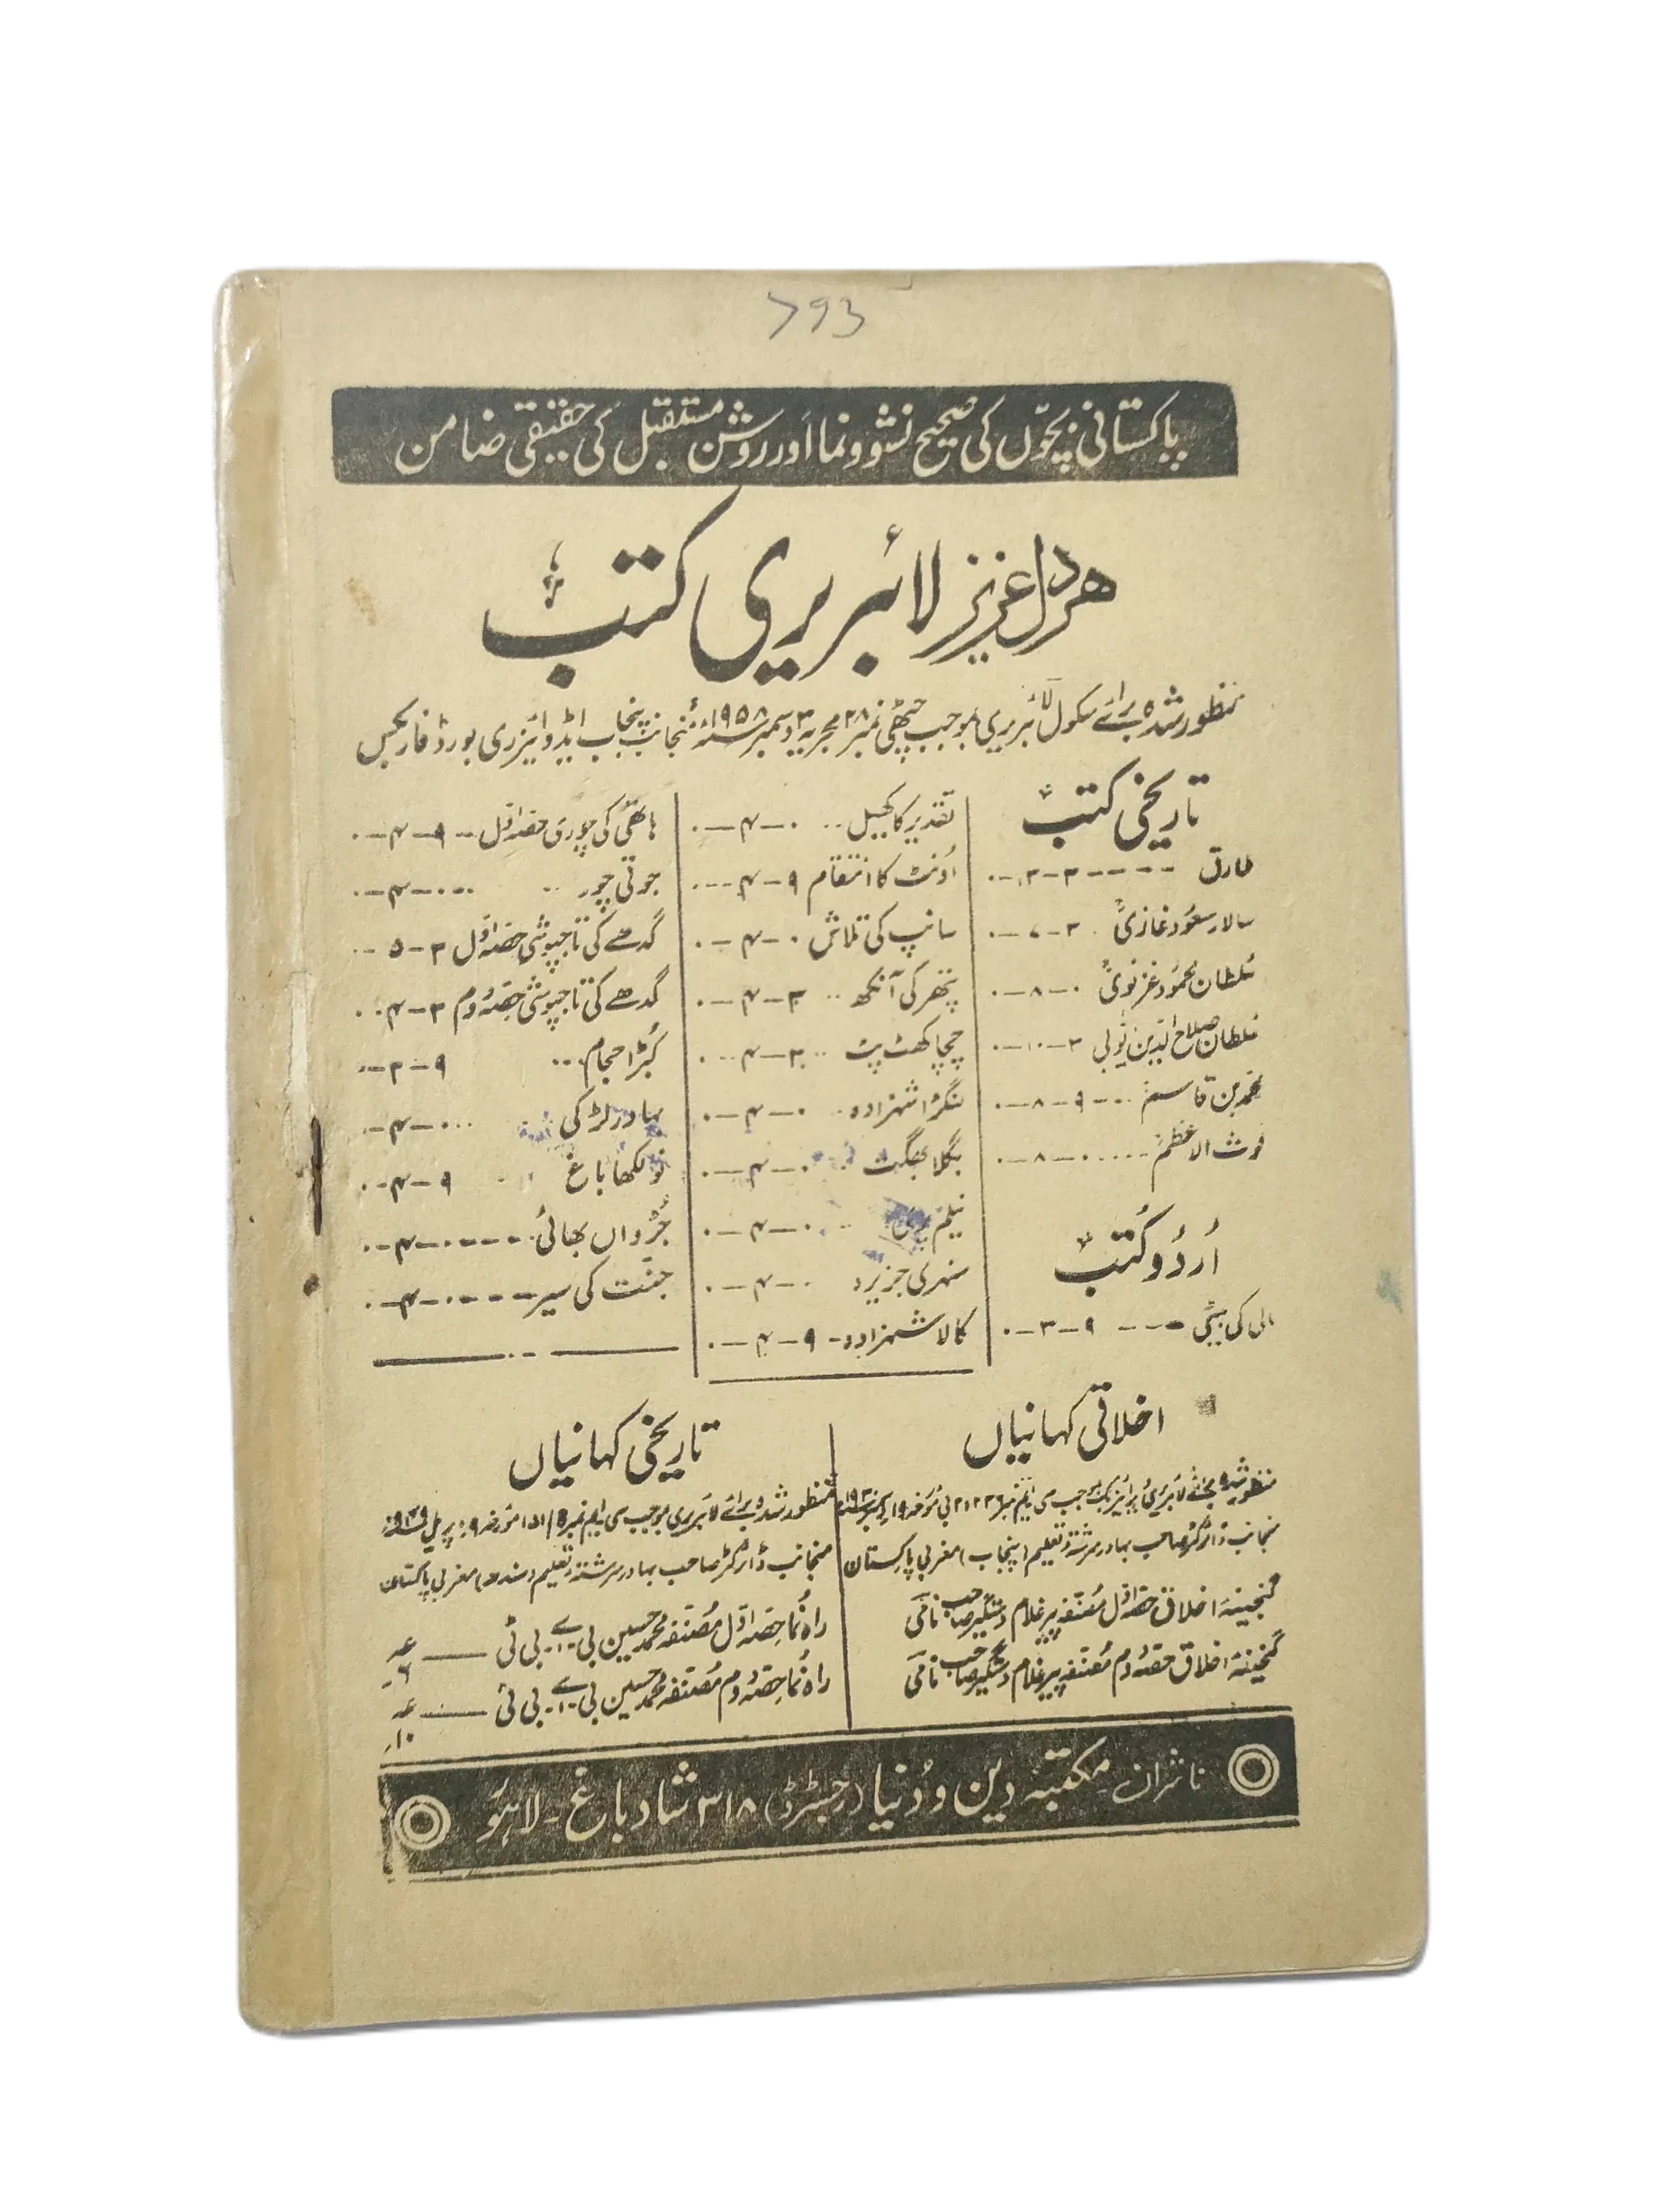 793
پاکستانی بچّوں کی صحیح نشوونما اور روشن مستقبل کی حقیقی ضامن
ہردلعزیز لائبریری کتب
منظور شدہ برائے سکول لائبریری بموجب چٹھی نمبر ۲۸ مجریہ ۳ دسمبر ۱۹۵۸ء منجانب پنجاب ایڈوائیزری بورڈ فار بکس
تاریخی کتب
طارق ----۳-۳-۰
سالار سعود غازیؒ ۳-۷-۰
سلطان محمود غزنویؒ ۰-۸-۰
سلطان صلاح الدین ایوبی ۳-۱۰-۰
محمد بن قاسم ۹-۸-۰
غوث الاعظمؒ ۰-۸-۰
اُردو کتب
مالی کی بیٹی --- ۹-۳-۰
تقدیر کا کھیل .. ۰-۴-۰
اونٹ کا انتقام ۹-۴-۰
سانپ کی تلاش ۰-۴-۰
پتھر کی آنکھ .. ۳-۴-۰
چچا کھٹ پٹ .. ۳-۴-۰
لنگڑا شہزادہ .. ۰-۴-۰
بگلا بھگت .. ۰-۴-۰
نیلم پری .. ۰-۴-۰
سنہری جزیرہ ۰-۴-۰
کالا شہزادہ - ۹-۴-۰
ہاتھی کی چوری حصہ اوّل -- ۹-۴-۰
جوتی چور .. ۰-۴-۰
گدھے کی تاجپوشی حصہ اوّل ۳-۵-۰
گدھے کی تاجپوشی حصہ دوم ۳-۴-۰
کبڑا حجام ... ۹-۳-۰
بہادر لڑکی ۰-۴-۰
نولکھا باغ ۹-۴-۰
جڑواں بھائی ----۰-۴-۰
جنّت کی سیر ----۰-۴-۰
اخلاقی کہانیاں
منجانب ڈائرکٹر صاحب بہادر سرشتہ تعلیم (پنجاب) مغربی پاکستان
گنجینۂ اخلاق حصہ اوّل مصنفہ پیر غلام دستگیر صاحب نامی
گنجینۂ اخلاق حصہ دوم مصنفہ پیر غلام دستگیر صاحب نامی
تاریخی کہانیاں
منظور شدہ برائے لائبریری بموجب سی ایم نمبر
منجانب ڈائرکٹر صاحب بہادر سرشتہ تعلیم (سندھ) مغربی پاکستان
راہ نُما حصہ اوّل مصنفہ محمد حسین بی-اے-بی ٹی
راہ نُما حصہ دوم مصنفہ محمد حسین بی-اے-بی ٹی
ناشران۔ مکتبہ دین و دُنیا (رجسٹرڈ) ۳۱۸ شاد باغ - لاہور